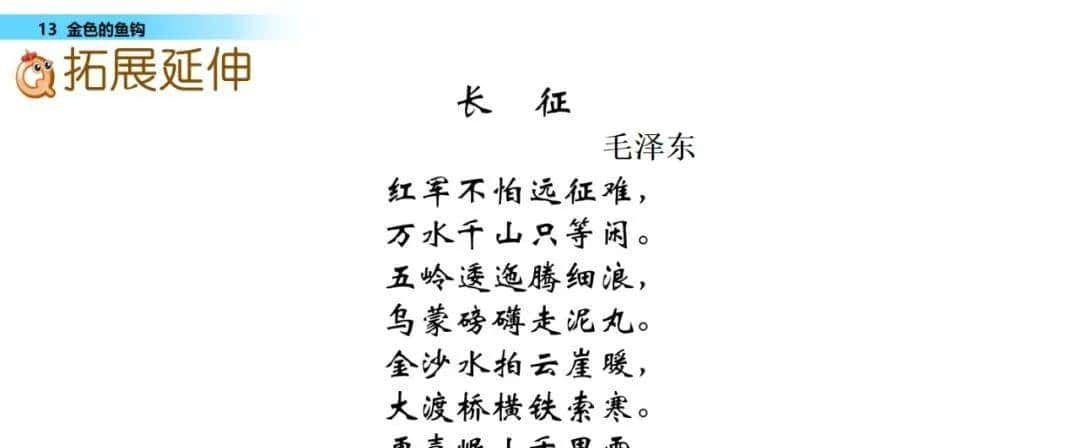 13 金色的鱼钩
拓展延伸
长 征
毛泽东
红军不怕远征难，
万水千山只等闲。
五岭逶迤腾细浪，
乌蒙磅礴走泥丸。
金沙水拍云崖暖，
大渡桥横铁索寒。
更喜岷山千里雪